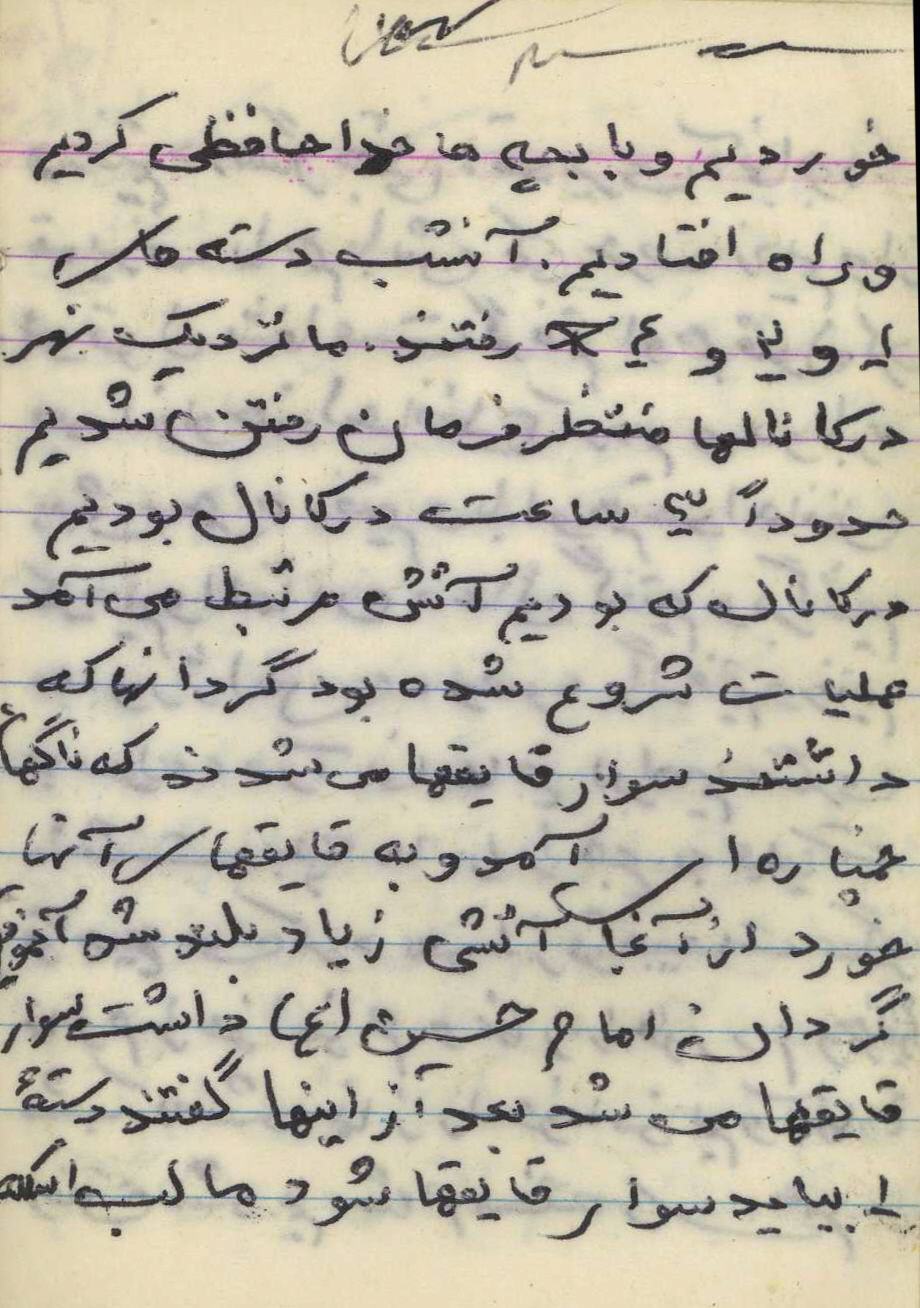 خوردیم و با بچه ها خداحافظی کردیم
و راه افتادیم. آنشب دسته های
۱ و ۲ و ۴ رفتند. ما نزدیک نهر
درکانالها منتظر فرمان رفتن شدیم
حدوداً ۳ ساعت درکانال بودیم
درکانال که بودیم آتش مرتبط می آمد
عملیات شروع شده بود گردانها که
داشتند سوار قایقها می شدند که ناگهان
خمپاره ای آمد و به قایقهای آنها
خورد از آنجا آتشی زیاد بلند شد آنموقع
گردان امام حسین (ع) داشت سوار
قایقها می شد بعد از اینها گفتند دستهٔ
۱ بیاید سوار قایقها شود ما لب اسکله